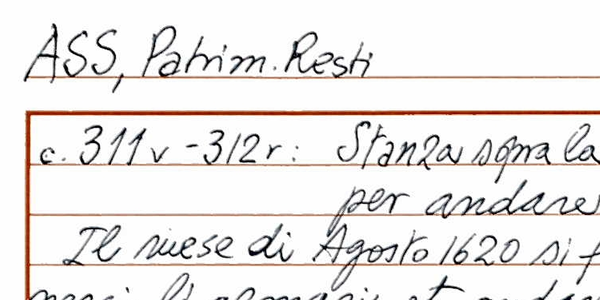 ASS, Patrim. Resti
c. 311v - 312r: Stanza sopra la
per andare
Il mese di Agosto 1620 si f